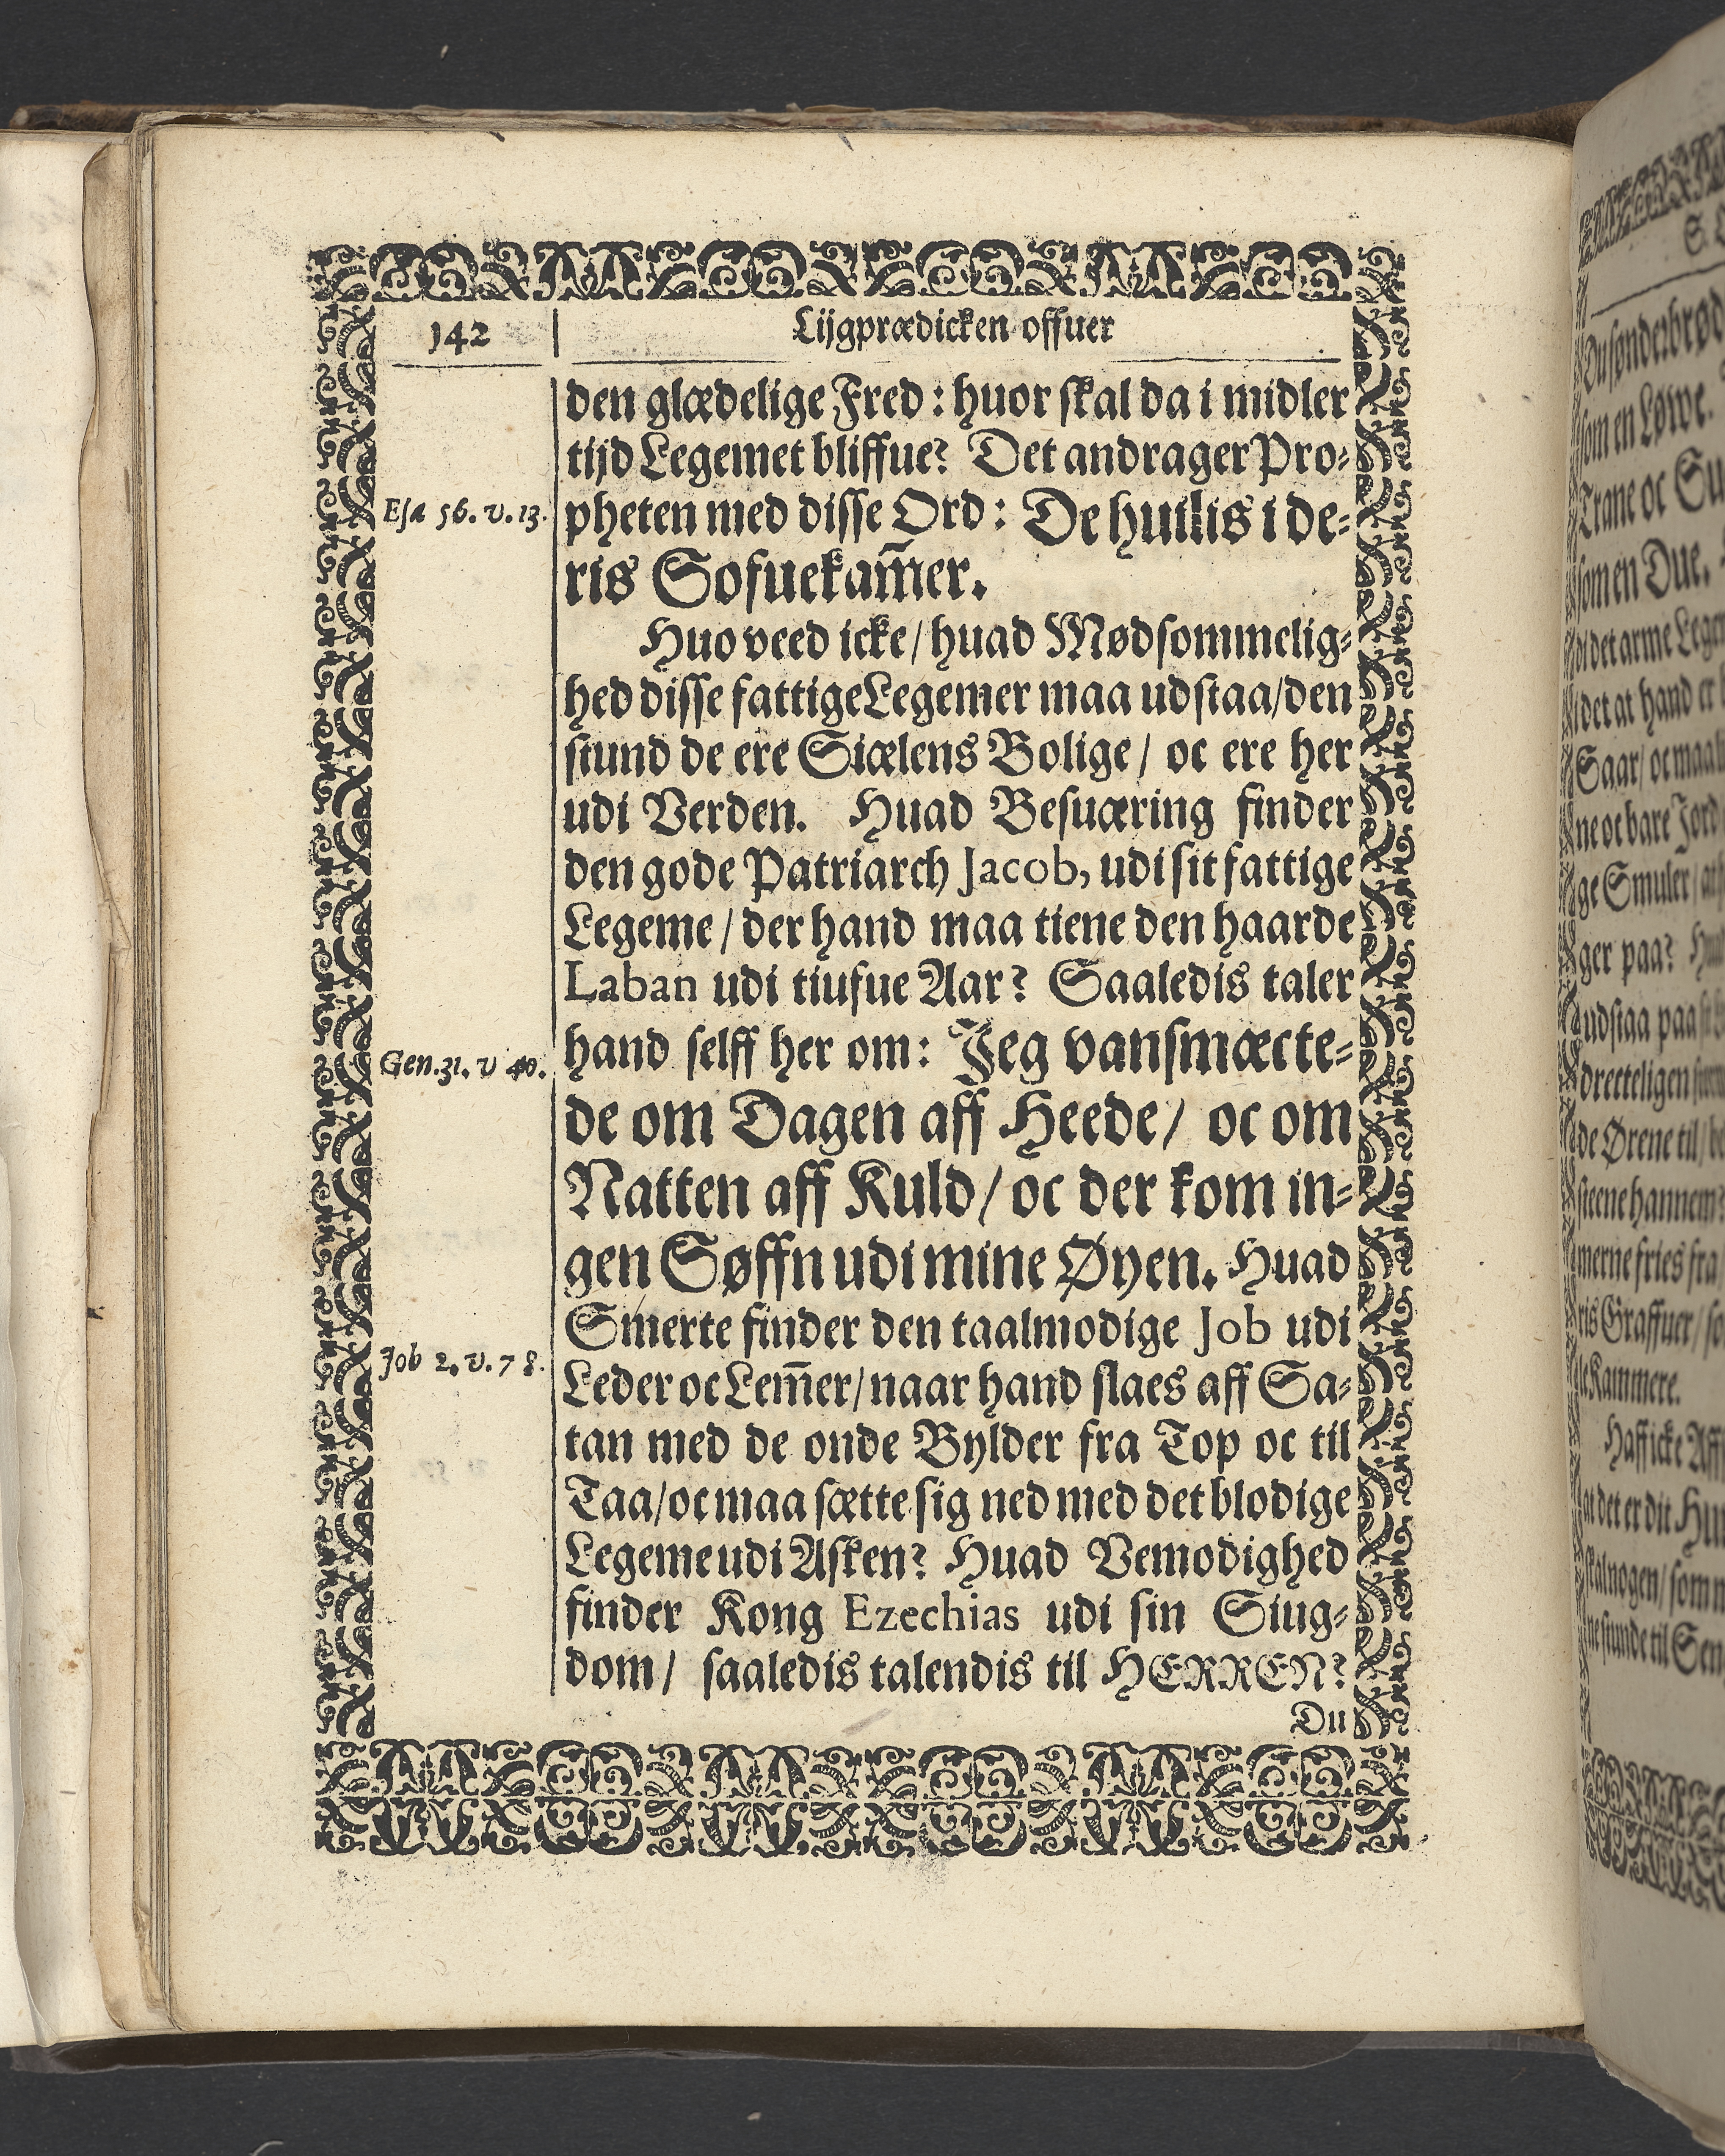 142
Lijgprædicken offuer
den glædelige Fred: huor skal da i midler
tijd Legemet bliffue? Det andrager Pro-
Esa 56. v. 13.
pheten med disse Ord: De huilis i de-
ris Sofuekam̃er.
Huo veed icke/ huad Mødsommelig-
hed disse fattige Legemer maa udstaa/ den
stund de ere Siælens Bolige/ oc ere her
udi Verden. Huad Besuæring finder
den gode Patriarch Jacob, udi sit fattige
Legeme/ der hand maa tiene den haarde
Laban udi tiufue Aar? Saaledis taler
Gen. 31. v 40.
hand selff her om: Jeg vansmæcte-
de om Dagen aff Heede/ oc om
Natten aff Kuld/ oc der kom in-
gen Søffn udi mine Øyen. Huad
Smerte finder den taalmodige Job udi
Job 2. v. 7 8.
Leder oc Lem̃er/ naar hand slaes aff Sa-
tan med de onde Bylder fra Top oc til
Taa/ oc maa sætte sig ned med det blodige
Legeme udi Asken? Huad Vemodighed
finder Kong Ezechias udi sin Siug-
dom/ saaledis talendis til HERREN?
Du
Du sønderbrød
som en Løwe.
Trane oc Su
som en Due.
di det arme Lege
i det at hand er
Saar/ oc maa
ne oc bare Jord
ge Smuler/ at
ger paa? Hu
udstaa paa
drecteligen
de Ørene til/
steene hannem?
merne fries fra
ris Graffuer/ so
Kammere.
Haff icke Aff
at det er dit Hu
skal nogen/ som
ne stunde til Sen